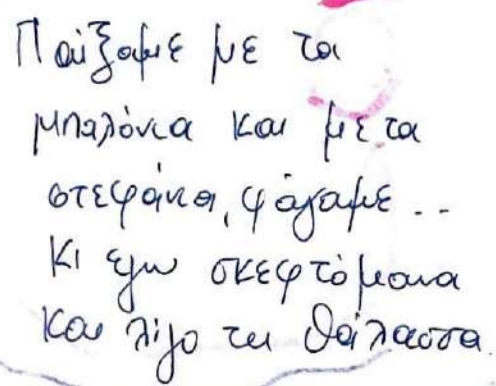 Παίξαμε με τα
μπαλόνια και με τα
στεφάνια, φάγαμε ..
Κι εγω σκεφτόμουνα
και λίγο τη θάλασσα.